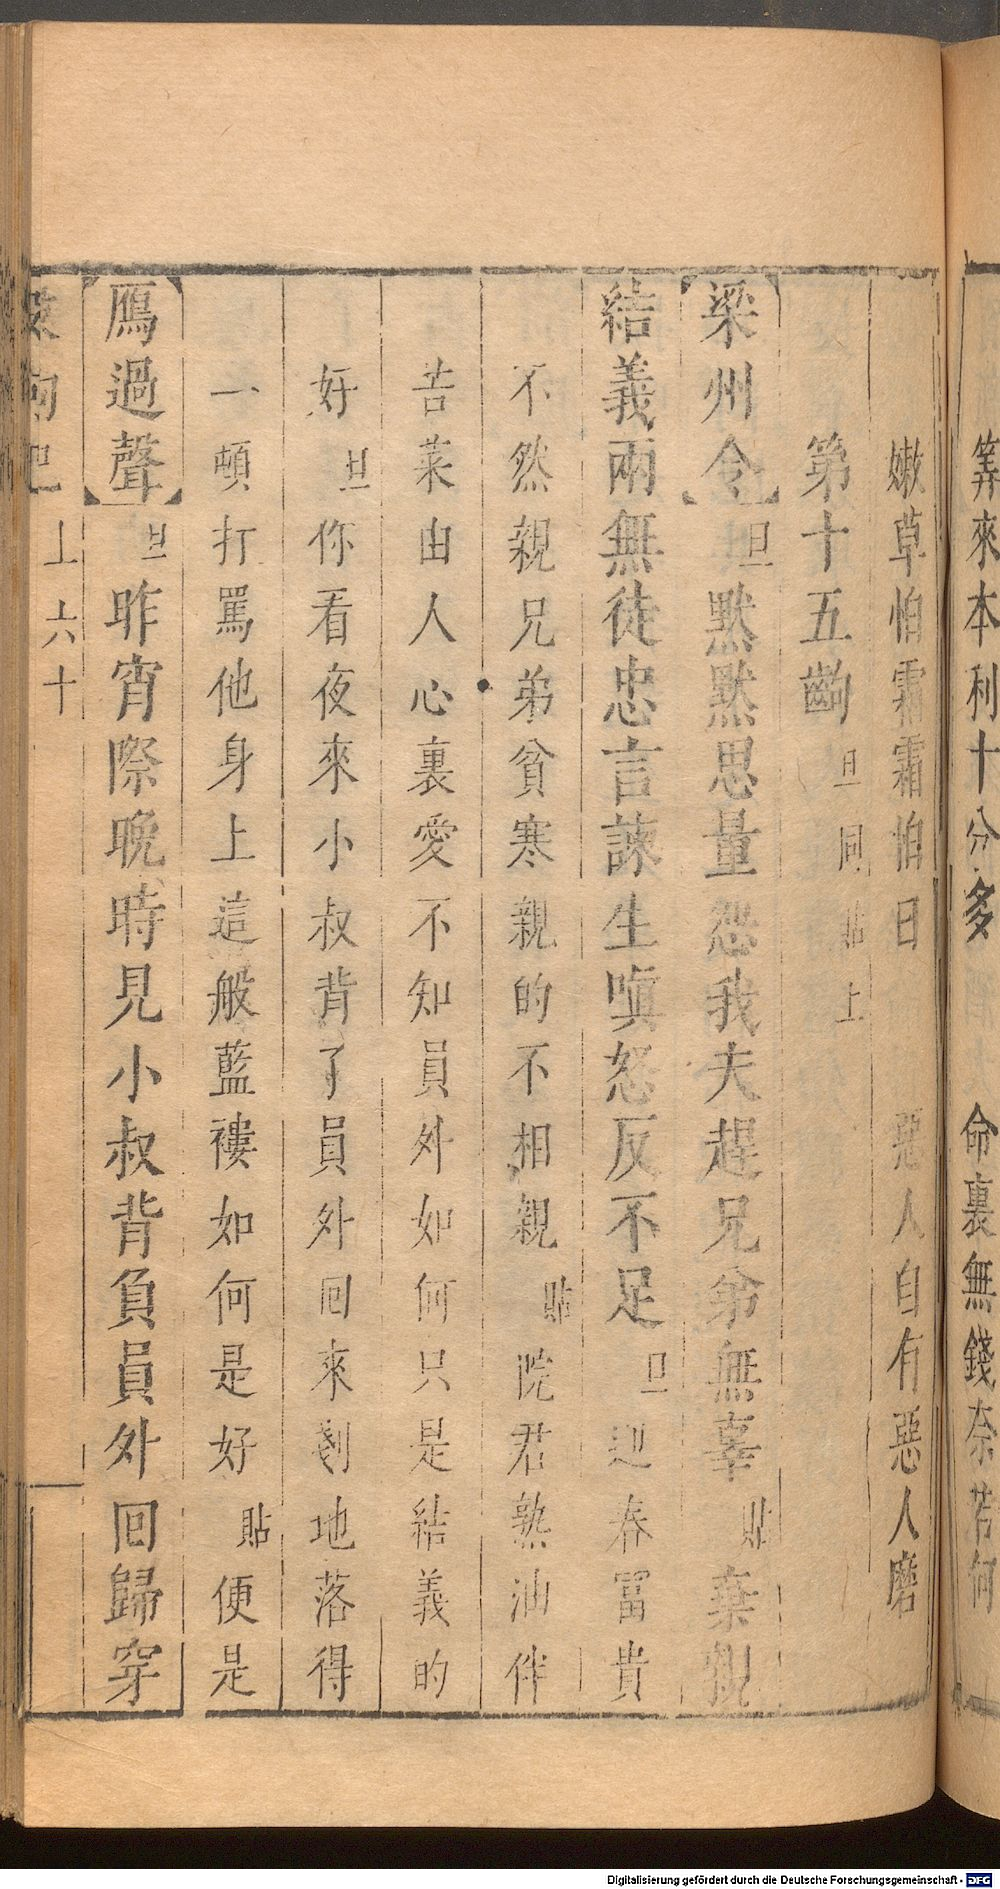 筭來本利十分多　命裏無錢奈若何
嫩草怕霜霜怕日　惡人自有惡人磨
第十五齣 旦同貼上
【梁州令】旦 默默思量怨我夫趕兄弟無辜 貼 棄親
結義兩無徒忠言諫生嗔怒反不足 旦 迎春冨貴
不然親兄弟貧寒親的不相親 貼 院君熟油伴
苦菜由人心裏愛不知員外如何只是結義的
好 旦 你看夜來小叔背了員外囘來剗地落得
一頓打罵他身上這般藍褸如何是好 貼 便是
【鴈過聲】旦 昨宵際晚時見小叔背負員外回歸穿
殺狗巴 上 六十
Digitalisierung gefördert durch die Deutsche Forschungsgemeinschaft - DFG